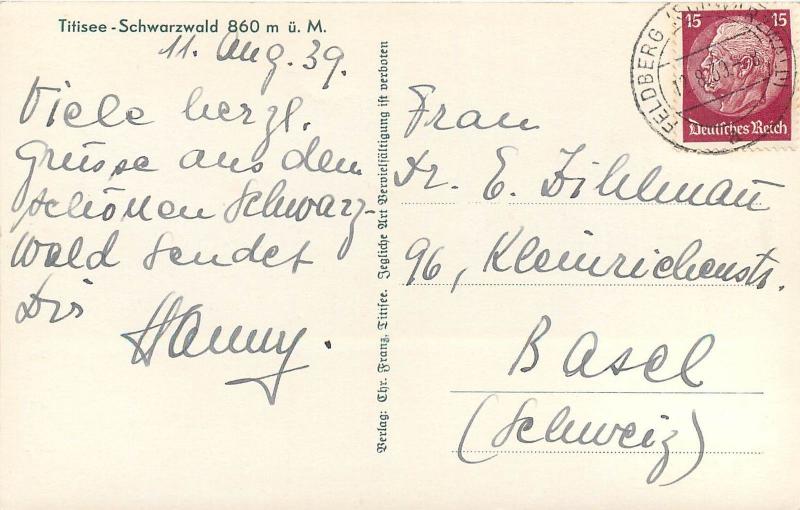 Titisee - Schwarzwald 860 m ü. M.
11. Aug. 39.
Viele herzl.
Grüsse aus dem
schönen Schwarz-
wald sendet
Dir
Hanny.
Verlag: Chr. Franz, Titisee. Jegliche Art Vervielfältigung ist verboten
FELDBERG (SCHWARZWALD)
15 15
Deutsches Reich
Frau
Dr. E. Dihlmann
96, Kleinrichenstr.
Basel
(Schweiz)